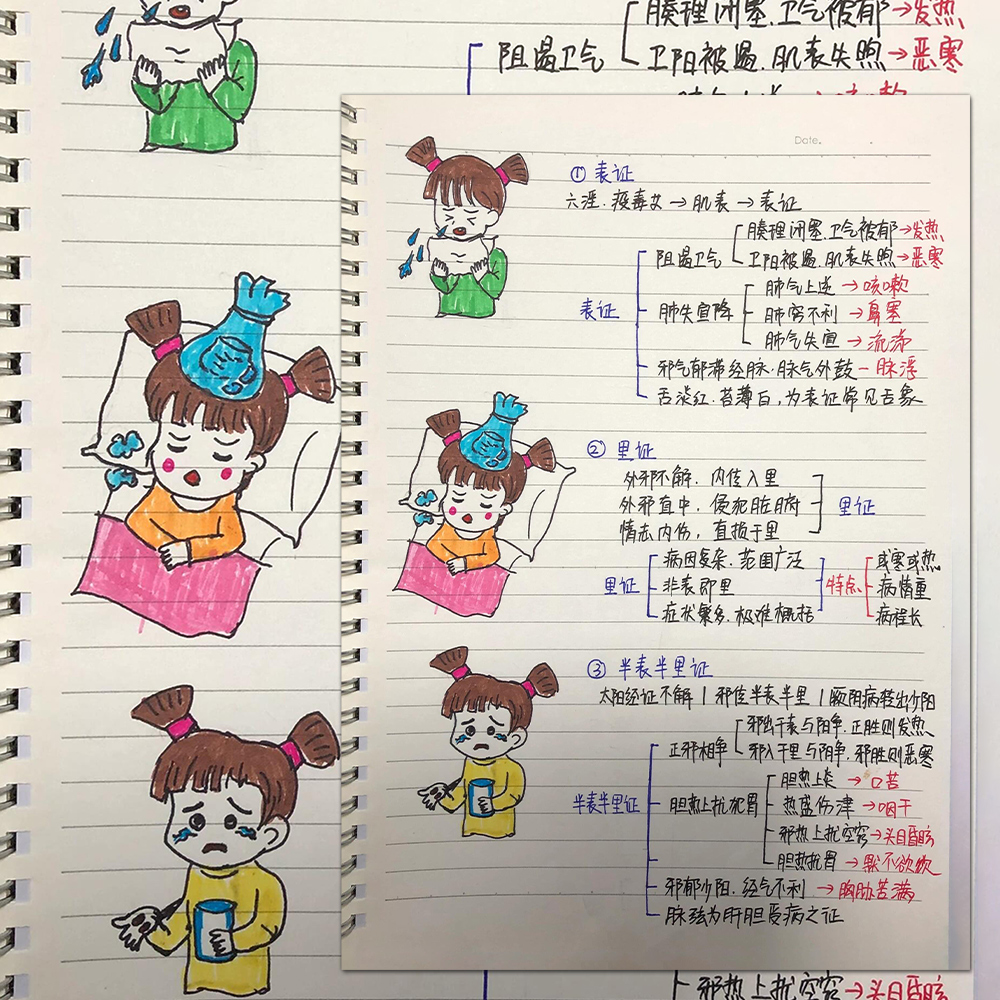 腠理闭塞.卫气被郁→发热
阻遏卫气
卫阳被遏.肌表失煦→恶寒
Date.
① 表证
六淫.疫毒犯→肌表→表证
腠理闭塞.卫气被郁→发热
阻遏卫气
卫阳被遏.肌表失煦→恶寒
肺气上逆→咳嗽
表证
肺失宣降
肺窍不利→鼻塞
肺气失宣→流涕
邪气郁滞经脉.脉气外鼓-脉浮
舌淡红.苔薄白,为表证常见舌象
② 里证
外邪不解.内传入里
外邪直中.侵犯脏腑
里证
情志内伤,直损于里
病因复杂.范围广泛
或寒或热
里证
非表即里
特点
病情重
症状繁多.极难概括
病程长
③ 半表半里证
太阳经证不解|邪传半表半里|厥阴病转出少阳
邪出于表与阳争.正胜则发热
正邪相争
邪入于里与阴争.邪胜则恶寒
胆热上炎→口苦
半表半里证
胆热上扰犯胃
热盛伤津→咽干
邪热上扰空窍→头目昏眩
胆热扰胃→默不欲饮
邪郁少阳.经气不利→胸胁苦满
脉弦为肝胆受病之征
邪热上扰空窍→头目昏眩